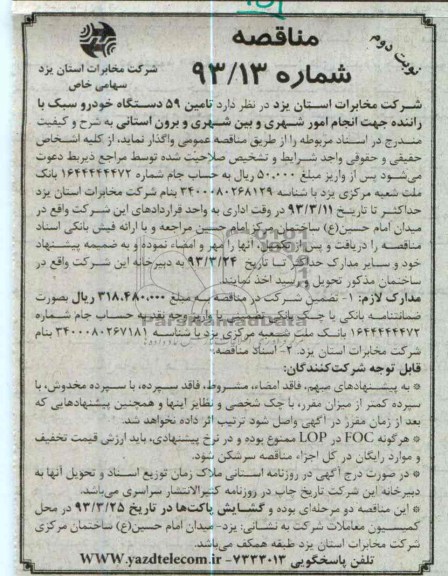 نوبت دوم
مناقصه
شماره ۹۳/۱۳
شرکت مخابرات استان یزد
سهامی خاص
شرکت مخابرات استان یزد در نظر دارد تامین ۵۹ دستگاه خودرو سبک با
راننده جهت انجام امور شهری و بین شهری و برون استانی به شرح و کیفیت
مندرج در اسناد مربوطه را از طریق مناقصه عمومی واگذار نماید، از کلیه اشخاص
حقیقی و حقوقی واجد شرایط و تشخیص صلاحیت شده توسط مراجع ذیربط دعوت
می‌شود پس از واریز مبلغ ۵۰،۰۰۰ ریال به حساب جام شماره ۱۶۴۴۴۴۴۴۷۲ بانک
ملت شعبه مرکزی یزد با شناسه ۳۴۰۰۰۸۰۲۶۸۱۲۹ بنام شرکت مخابرات استان یزد
حداکثر تا تاریخ ۹۳/۳/۱۱ در وقت اداری به واحد قراردادهای این شرکت واقع در
میدان امام حسین(ع) ساختمان مرکز امام حسین مراجعه و با ارائه فیش بانکی اسناد
مناقصه را دریافت و پس از تکمیل، آنها را مهر و امضاء نموده و به ضمیمه پیشنهاد
خود و سایر مدارک حداکثر تا تاریخ ۹۳/۳/۲۴ به دبیرخانه این شرکت واقع در
ساختمان مذکور تحویل و رسید اخذ نمایند.
مدارک لازم: ۱- تضمین شرکت در مناقصه به مبلغ ۳۱۸،۴۸۰،۰۰۰ ریال بصورت
ضمانتنامه بانکی یا چک بانکی تضمینی یا واریز وجه نقد به حساب جام شماره
۱۶۴۴۴۴۴۴۷۲ بانک ملت شعبه مرکزی یزد با شناسه ۳۴۰۰۰۸۰۲۶۷۱۸۱ بنام
شرکت مخابرات استان یزد. ۲- اسناد مناقصه.
قابل توجه شرکت‌کنندگان:
* به پیشنهادهای مبهم، فاقد امضاء، مشروط، فاقد سپرده، با سپرده مخدوش، با
سپرده کمتر از میزان مقرر، با چک شخصی و نظایر اینها و همچنین پیشنهادهایی که
بعد از زمان مقرر در آگهی واصل شود ترتیب اثر داده نخواهد شد.
* هرگونه FOC در LOP ممنوع بوده و در نرخ پیشنهادی، باید ارزش قیمت تخفیف
و موارد رایگان در کل اجزاء مناقصه سرشکن شود.
* در صورت درج آگهی در روزنامه استانی ملاک زمان توزیع اسناد و تحویل آنها به
دبیرخانه این شرکت تاریخ چاپ در روزنامه کثیرالانتشار سراسری می‌باشد.
* این مناقصه دو مرحله‌ای بوده و گشایش پاکت‌ها در تاریخ ۹۳/۳/۲۵ در محل
کمیسیون معاملات شرکت به نشانی: یزد-میدان امام حسین(ع) ساختمان مرکزی
شرکت مخابرات استان یزد طبقه همکف می‌باشد.
تلفن پاسخگویی ۷۲۳۳۰۱۳- WWW.yazdtelecom.ir